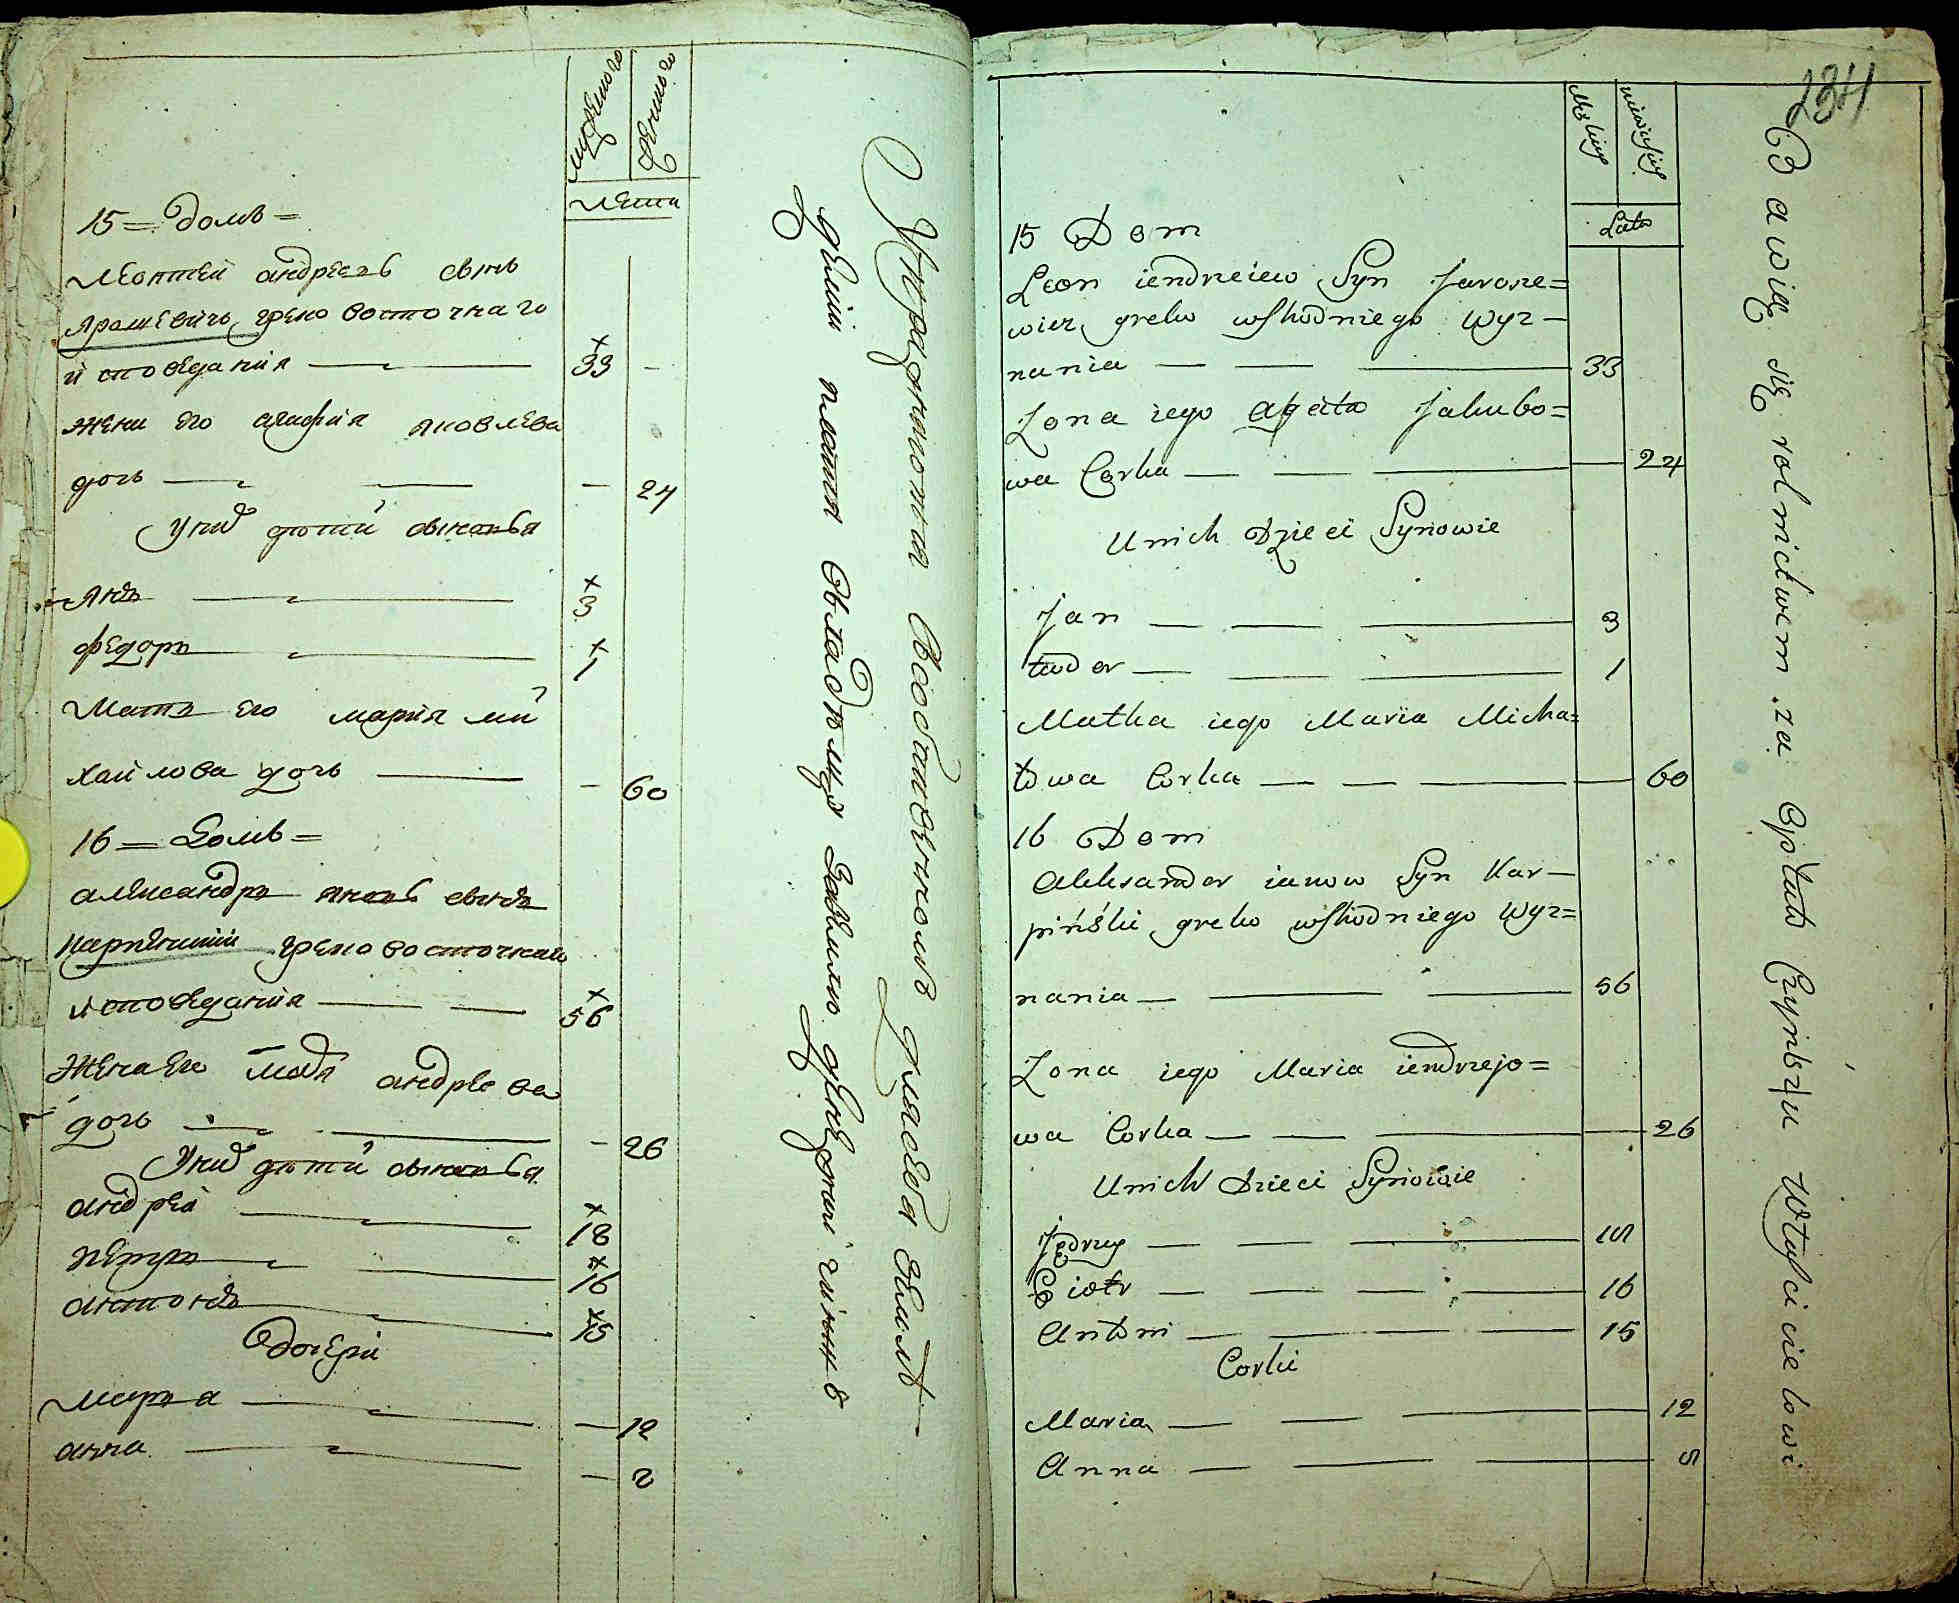 мужеского
женского
лета
15 = домъ =
Леонтей андреевъ сынъ
Ярошевичъ греко восточнаго
исповедания
33
жена его агафия яковлева
дочь
24
у них дети сыновья
янъ
3
федоръ
1
Мать его мария ми
хайлова дочь
60
16 = домъ =
александръ яновъ сынъ
карпинский греко восточнаго
исповедания
56
Жена его андреева
дочь
26
у них дети сыновья
андрей
18
петръ
16
антонъ
15
дочери
марья
12
анна
2
Упражнения в собственномъ земле
денги платя владельцу
234
Męskiey
niewieściey
Lata
15 Dom
Leon iendrzeiew Syn Jarosze=
wicz greko wshodniego wyz-
nania
33
Zona iego agata Jakubo=
wa Corka
24
U nich Dzieci Synowie
Jan
3
tador
1
Matka iego Maria Micha=
łowa Corka
60
16 Dom
Aleksander ianow Syn Kar-
pińśki greko wshodniego Wyz=
nania
56
Zona iego Maria iendrzejo=
wa Corka
26
U nich Dzieci Synowie
Jędrzey
18
Piotr
16
Antoni
15
Corki
Maria
12
Anna
2
Bawią się rolnictwem za opłatą Czynszu Włascicielowi